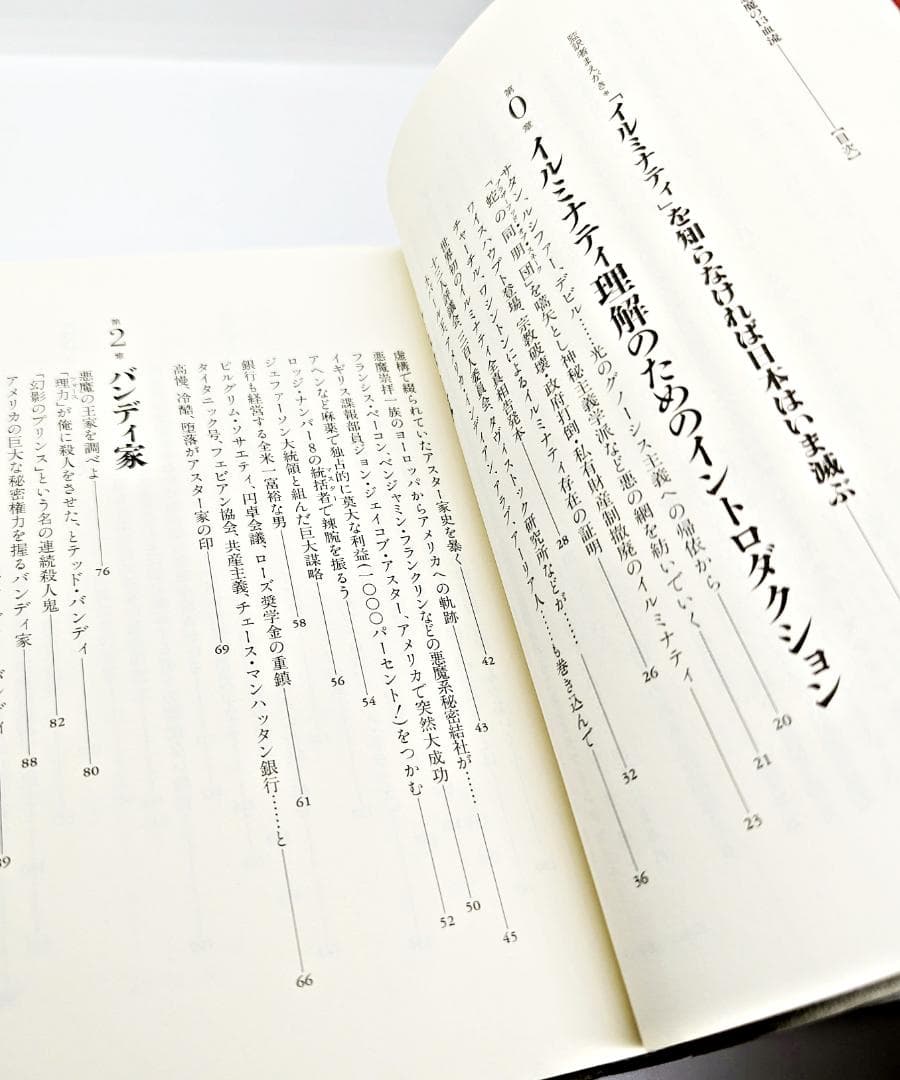 魔の13血流
[目次]
監訳者まえがき*「イルミナティ」を知らなければ日本はいま滅ぶ
第0章 イルミナティ理解のためのイントロダクション
サタン、ルシファー、デビル……光のグノーシス主義への帰依から 20
「蛇」の同朋団を嚆矢とし神秘主義学派など悪の網を紡いでいく 21
ワイスハウプト登場、宗教破壊・政府打倒・私有財産制撤廃のイルミナティ 23
チャーチル、ワシントンによるイルミナティ存在の証明 26
世界初のイルミナティ全真相告発本 28
十三人評議会、三百人委員会、タヴィストック研究所などが…… 32
アーリア人……も巻き込んで 36
虚構で綴られていたアスター家史を暴く 42
悪魔崇拝一族のヨーロッパからアメリカへの軌跡 43
フランシス・ベーコン、ベンジャミン・フランクリンなどの悪魔系秘密結社が…… 45
イギリス諜報部員ジョン・ジェイコブ・アスター、アメリカで突然大成功 50
アヘンなど麻薬で独占的に莫大な利益(一〇〇〇パーセント!)をつかむ 52
ロッジ・ナンバー8の統括者で辣腕を振るう 54
ジェファーソン大統領と組んだ巨大謀略 56
銀行も経営する全米一富裕な男 58
ピルグリム・ソサエティ、円卓会議、ローズ奨学金の重鎮 61
タイタニック号、フェビアン協会、共産主義、チェース・マンハッタン銀行……と 66
高慢、冷酷、堕落がアスター家の印 69
第2章 バンディ家 76
悪魔の王家を調べよ
「理力」が俺に殺人をさせた、とテッド・バンディ 80
「幻影のプリンス」という名の連続殺人鬼 82
アメリカの巨大な秘密権力を握るバンディ家 88